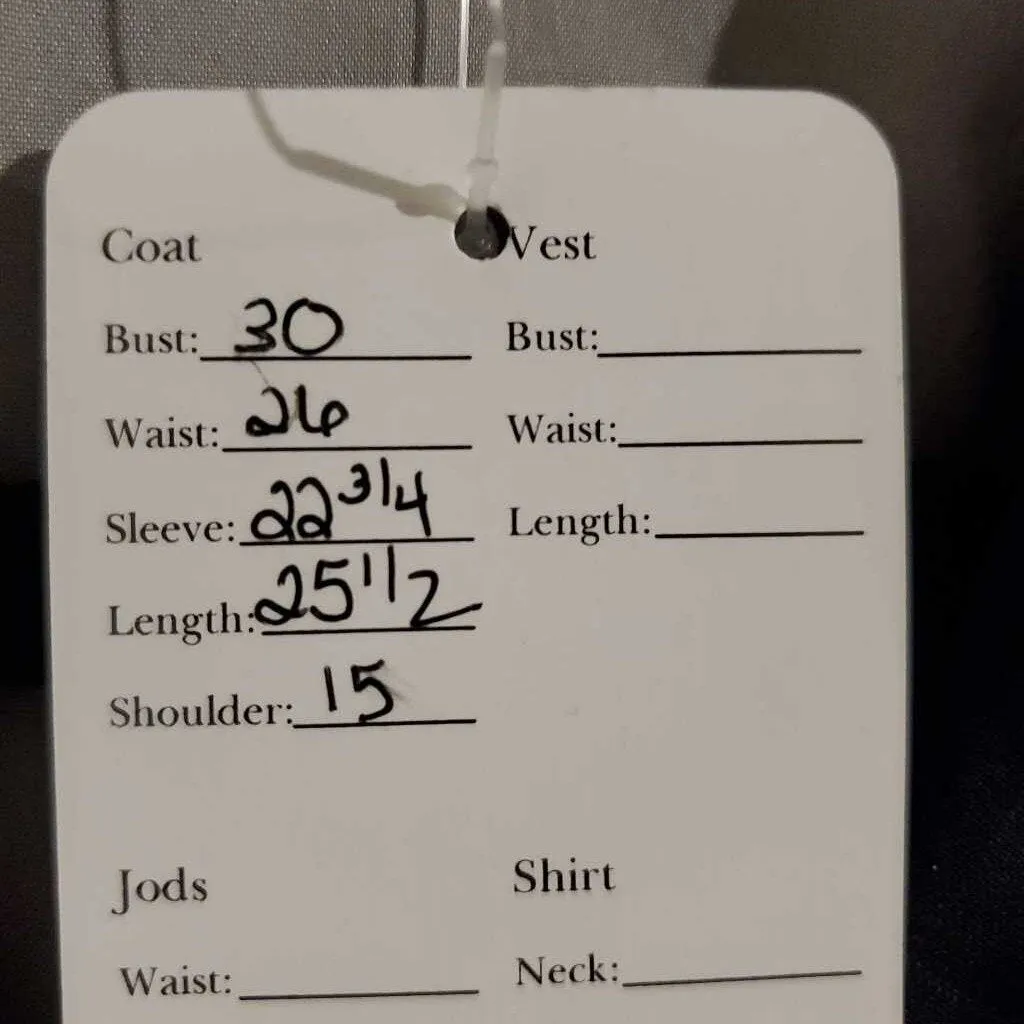 Coat
Bust: 30
Waist: 26
Sleeve: 22 3/4
Length: 25 1/2
Shoulder: 15
Vest
Bust:
Waist:
Length:
Jods
Waist:
Shirt
Neck: